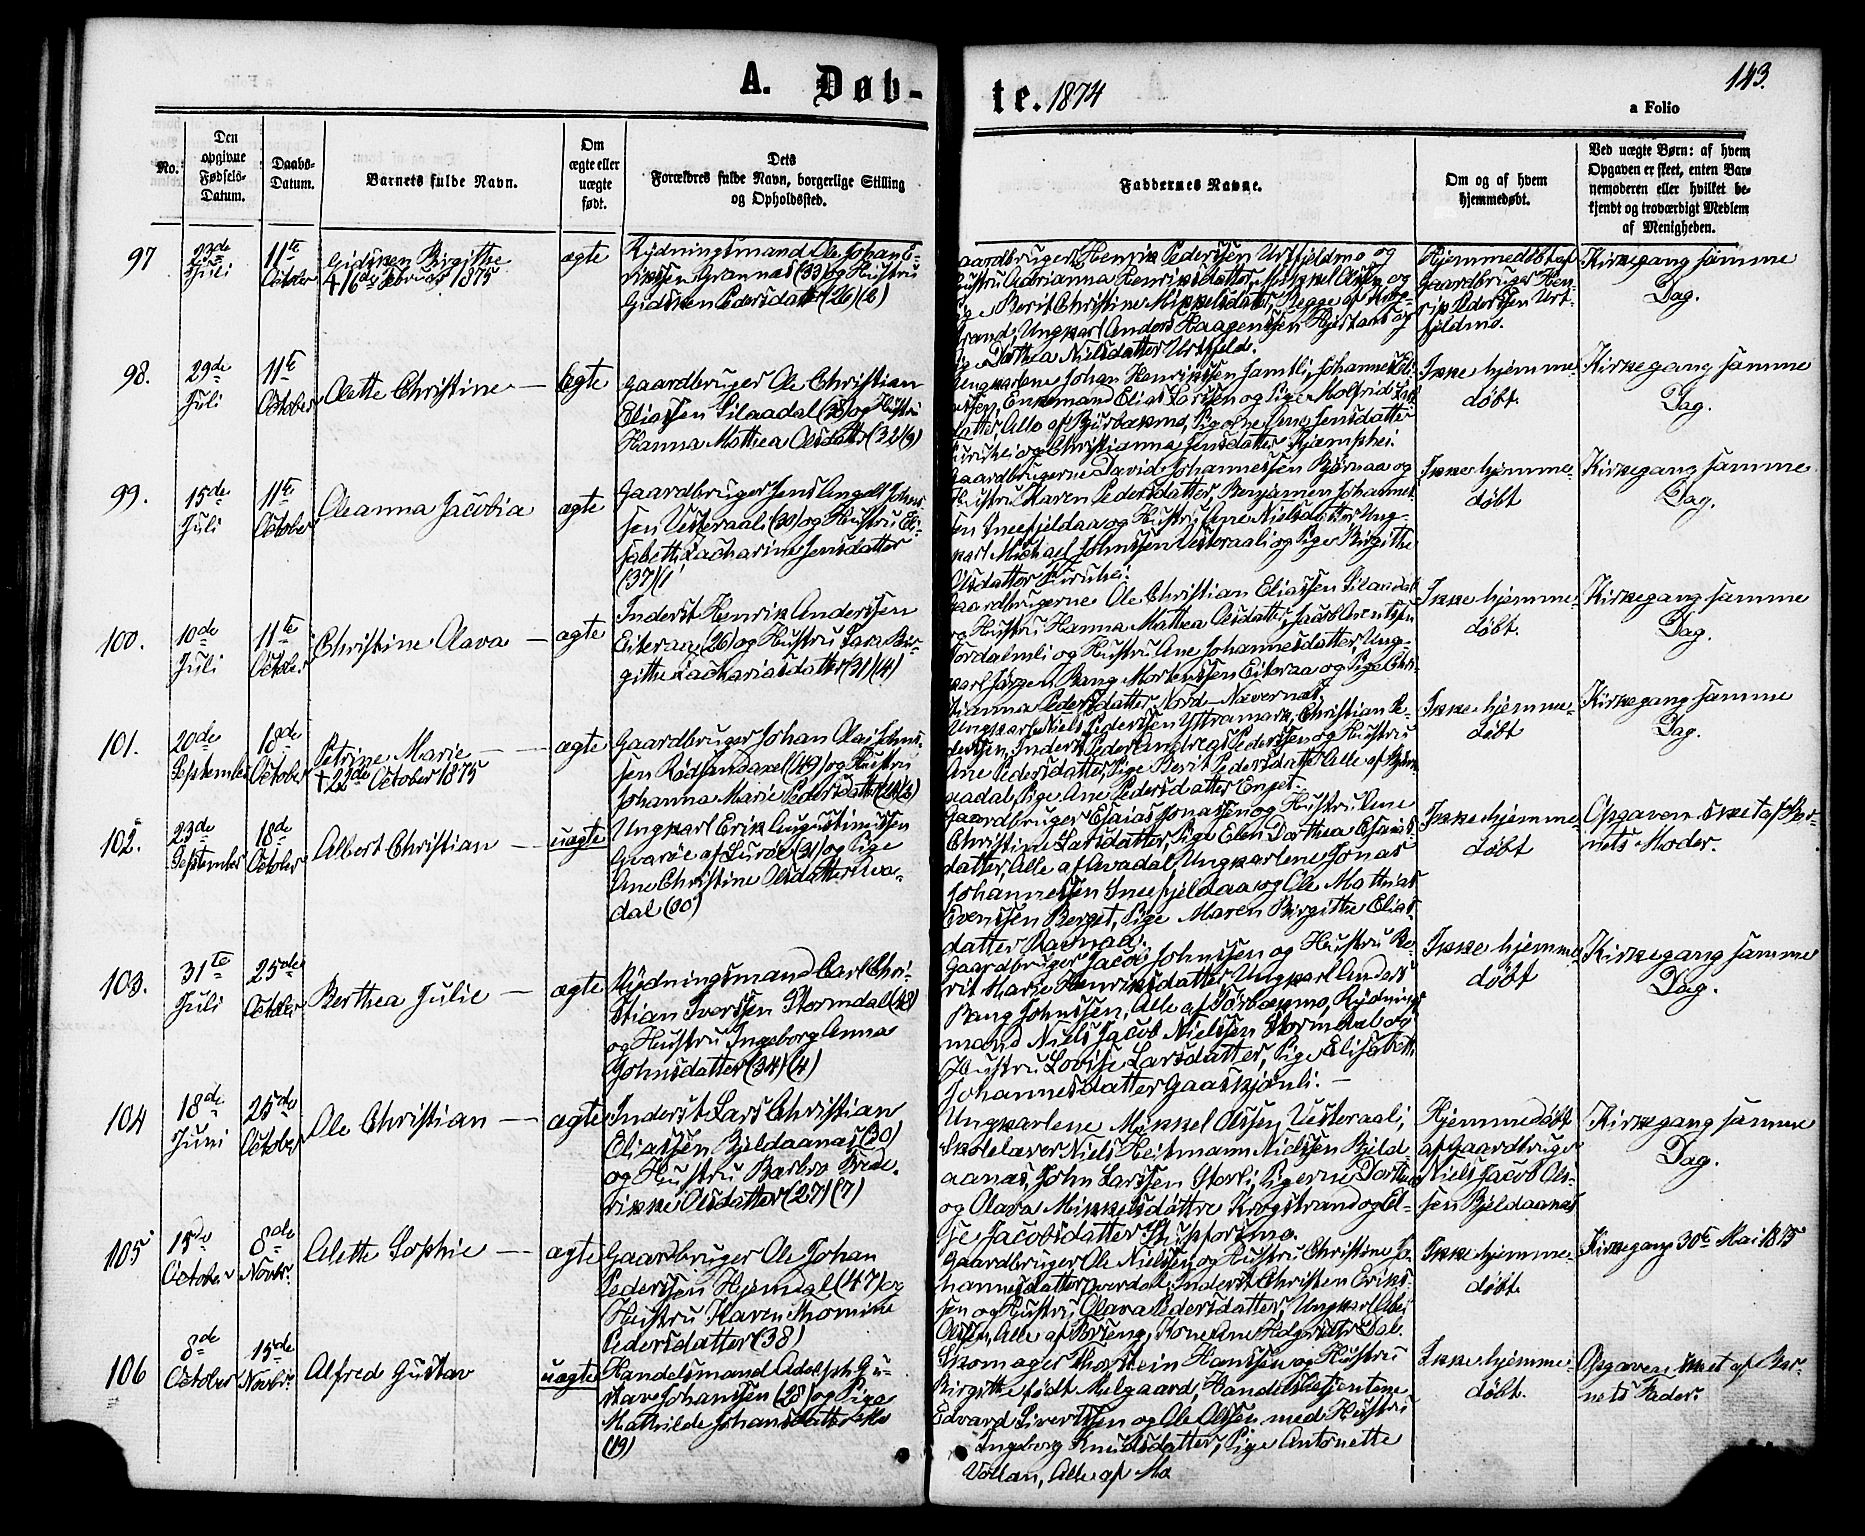 A. Døb-
te. 1874
143.
a Folio
No.
Den
opgivne
Fødsels-
Datum.
Daabs-
Datum.
Barnets fulde Navn.
Om
ægte eller
uægte
født.
Dets
Forældres fulde Navn, borgerlige Stilling
og Opholdssted.
Faddernes Navne.
Om og af hvem
hjemmedøbt.
Ved uægte Børn: af hvem
Opgaven er skeet, enten Bar-
nemoderen eller hvilket be-
kjendt og troværdigt Medlem
af Menigheden.
97
23de
Juli
11te
October
Gidsken Birgithe
† 16de Februar 1875
ægte
Rydningsmand Ole Johan E-
riksen Grannæs (33) og Hustru
Gidsken Pedersdatter (26) (6)
Gaardbruger Henrik Pedersen Urtfjeldmo og
Hustru Adrianna Henriksdatter, Mikkel Olsen og
Pige Berit Christine Mikkelsdatter, Begge af Krog-
strand, Ungkarl Anders Haagenssen Hjertaas og
Pige Dorthea Nielsdatter Urtfjeld.
Hjemmedøbt af
Gaardbruger Hen-
rik Pederssen Urt-
fjeldmo.
Kirkegang samme
Dag.
98.
29de
Juli
11te
October
Olette Christine —
ægte
Gaardbruger Ole Christian
Eliassen Lilaadal (28) og Hustru
Hanna Mathea Olsdatter (32) (9)
Ungkarlene Johan Henrikssen Jamtli, Johannes Eli-
assen, Enkemand Elias Larssen og Pige Molfrid Lars-
datter Alle af Bjurbækmo, Pigerne Ane Jensdatter
og Christianna Jensdatter Kjæmphei.
Ikke hjemme-
døbt.
Kirkegang samme
Dag.
99.
15de
Juli
11te
October
Oleanna Jacobia
ægte
Gaardbruger Jens Angell Johns-
sen Vesteraali (30) og Hustru Eli-
sabeth Zacharine Jensdatter
(37) (1
Gaardbrugerne David Johannessen Bjørnaa og
Hustru Karen Pedersdatter, Benjamen Johannes-
sen Sneefjeldaa og Hustru Ane Nielsdatter, Ung-
karl Michael Johnssen Vesteraali og Pige Birgithe
Olsdatter
Ikke hjemme-
døbt
Kirkegang samme
Dag.
100.
10de
Juli
11te
October
Christine Olava —
ægte
Inderst Henrik Anderssen
Eiteraa (26) og Hustru Sara Bir-
githe Zachariasdatter (31) (4)
Gaardbrugerne Ole Christian Eliassen Lilaadal
og Hustru Hanna Mathea Olsdatter, Jacob Arentssen
og Hustru Ane Johannesdatter, Ung-
karl Jørgen Bang Mortenssen Eiteraa og Pige Chri-
stianna Pedersdatter Nord-Næverness.
Ikke hjemme-
døbt.
Kirkegang samme
Dag.
101.
20de
September
18de
October
Petrine Marie —
† 22de October 1875
ægte
Gaardbruger Johan Olai Johns-
sen Rødsandaxel (49) og Hustru
Johanna Marie Pedersdatter
Ungkarl Niels Pederssen Yttramark, Christian Pe-
derssen, Inderst Peder Andreas Pederssen og Hustru
Ane Pedersdatter, Pige Berit Pedersdatter Alle af
Pige Ane Pedersdatter Enget.
Ikke hjemme-
døbt
Kirkegang samme
Dag.
102.
23de
September
18de
October
Albert Christian —
uægte
Ungkarl Erik Augustinussen
Kvarøe af Lurøe (31) og Pige
Ane Christine Olsdatter Ava-
dal (30)
Gaardbruger Esaias Jonassen og Hustru Ane
Christine Larsdatter, Pige Elen Dorthea Esaias-
datter, Alle af Avadal, Ungkarlene Jonas
Johannessen Sneefjeldaa og Ole Mathias
Evenssen Berget, Pige Maren Birgithe Elias-
datter
Ikke hjemme-
døbt
Opgaven skeet af Bar-
nets Moder.
103.
31te
Juli
25de
October
Berthea Julie —
ægte
Rydningsmand Carl Chri-
stian Iverssen Stormdal (42)
og Hustru Ingeborg Anna
Johnsdatter (34) (4)
Gaardbruger Jacob Johnssen og Hustru Be-
rit Marie Henriksdatter, Ungkarl Anders
Bang Johnssen, Alle af Tørbækmo, Rydnings-
mand Niels Jacob Nielssen Stormdal og
Hustru Lovise Larsdatter, Pige Elisabeth
Johannesdatter Gaaskjønli. —
Ikke hjemme-
døbt
Kirkegang samme
Dag.
104
18de
Juni
25de
October
Ole Christian —
ægte
Inderst Lars Christian
Eliassen Bjeldaanæs (30)
og Hustru Barbro Frede-
rikke Olsdatter (27) (7)
Ungkarlene Mikkel Olssen Vesteraali,
Skolelærer Niels Heitmann Nielssen Bjeld-
aanæs, John Larssen Storli, Pigerne Dorthea
og Olava Mikkelsdøttre Krogstrand og El-
se Jacobsdatter Skupforsmo.
Hjemmedøbt
af Gaardbruger
Niels Jacob Ols-
sen Bjeldaanæs
Kirkegang samme
Dag.
105
15de
October
8de
Novbr.
Olette Sophie —
ægte
Gaardbruger Ole Johan
Pederssen Hjemdal (47) og
Hustru Karen Thomine
Pedersdatter (38)
Gaardbruger Ole Nielssen og Hustru Christine Jo-
hannesdatter, Inderst Christen Eriks-
sen og Hustru Olava Pedersdatter, Ungkarl
Olssen, Alle af Kone Ane
Ikke hjemme-
døbt.
Kirkegang 30te Mai 1875
106
8de
October
15de
Novbr.
Alfred Gustav
uægte
Handelsmand Adolph Gu-
stav Johanssen (28) og Pige
Mathilde Johansdatter Mo
(19)
Skomager Thorstein Hanssen og Hustru
Birgitte født Melgaard, Handelsbetjentene
Edvard Sivertssen og Ole Olssen med Hustru
Ingeborg Knudsdatter, Pige Antonette
Vollan, Alle af Mo
Ikke hjemme-
døbt.
Opgaven skeet af Bar-
nets Fader.